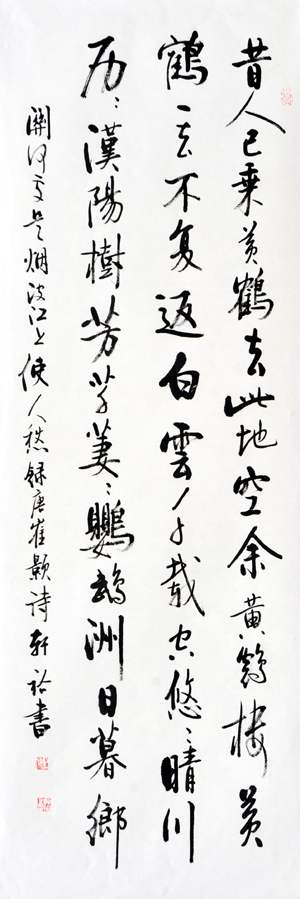 昔人已乘黄鶴去此地空余黄鶴楼黄
鶴一去不复返白雲千载空悠〻晴川
历〻漢陽樹芳草萋〻鸚鵡洲日暮鄉
關何处是烟波江上使人愁録唐崔颢詩軒裕書